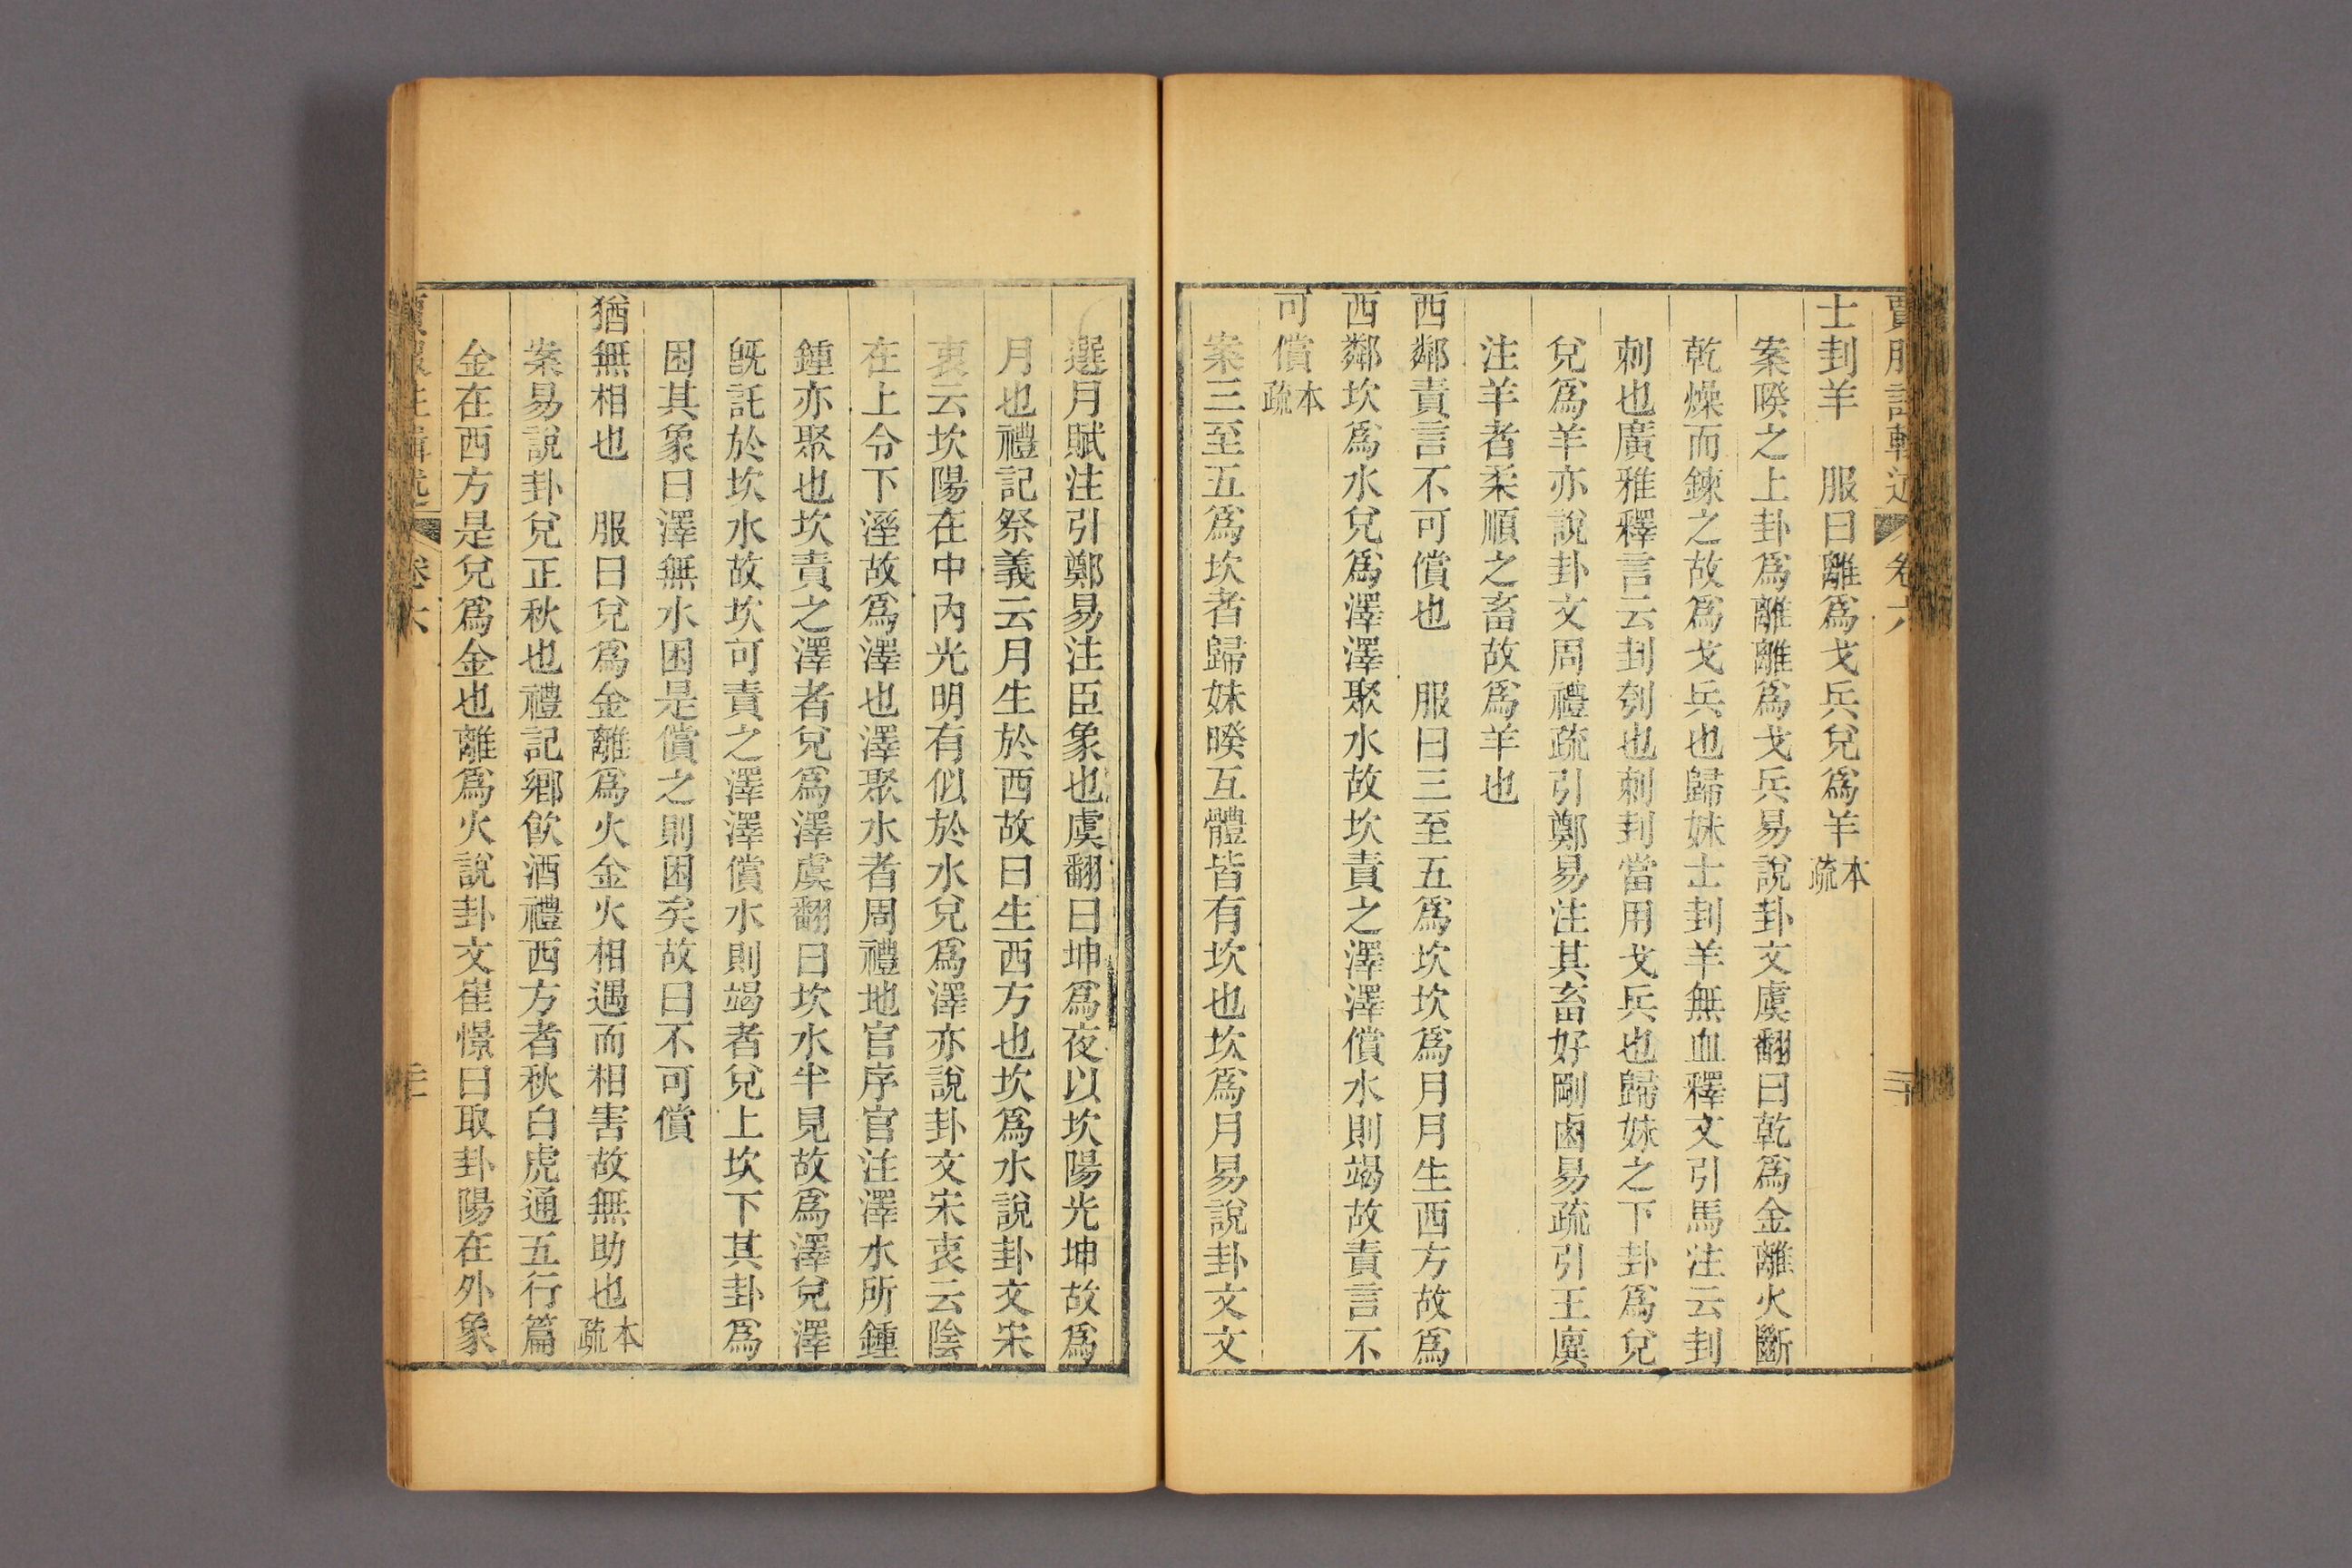 士刲羊　服曰離爲戈兵兌爲羊本疏
案睽之上卦爲離離爲戈兵易說卦文虞翻曰乾爲金離火斷
乾燥而鍊之故爲戈兵也歸妹士刲羊無血釋文引馬注云刲
刺也廣雅釋言云刲刳也刺刲當用戈兵也歸妹之下卦爲兌
兌爲羊亦說卦文周禮疏引鄭易注其畜好剛鹵易疏引王廙
注羊者柔順之畜故爲羊也
西鄰責言不可償也　服曰三至五爲坎坎爲月月生西方故爲
西鄰坎爲水兌爲澤澤聚水故坎責之澤澤償水則竭故責言不
可償本疏
案三至五爲坎者歸妹睽互體皆有坎也坎爲月易說卦文文
選月賦注引鄭易注臣象也虞翻曰坤爲夜以坎陽光坤故爲
月也禮記祭義云月生於西故曰生西方也坎爲水說卦文宋
衷云坎陽在中內光明有似於水兌爲澤亦說卦文宋衷云陰
在上令下溼故爲澤也澤聚水者周禮地官序官注澤水所鍾
鍾亦聚也坎責之澤者兌爲澤虞翻曰坎水半見故爲澤兌澤
旣託於坎水故坎可責之澤澤償水則竭者兌上坎下其卦爲
困其象曰澤無水困是償之則困矣故曰不可償
猶無相也　服曰兌爲金離爲火金火相遇而相害故無助也本疏
案易說卦兌正秋也禮記鄉飮酒禮西方者秋白虎通五行篇
金在西方是兌爲金也離爲火說卦文崔憬曰取卦陽在外象
卷六